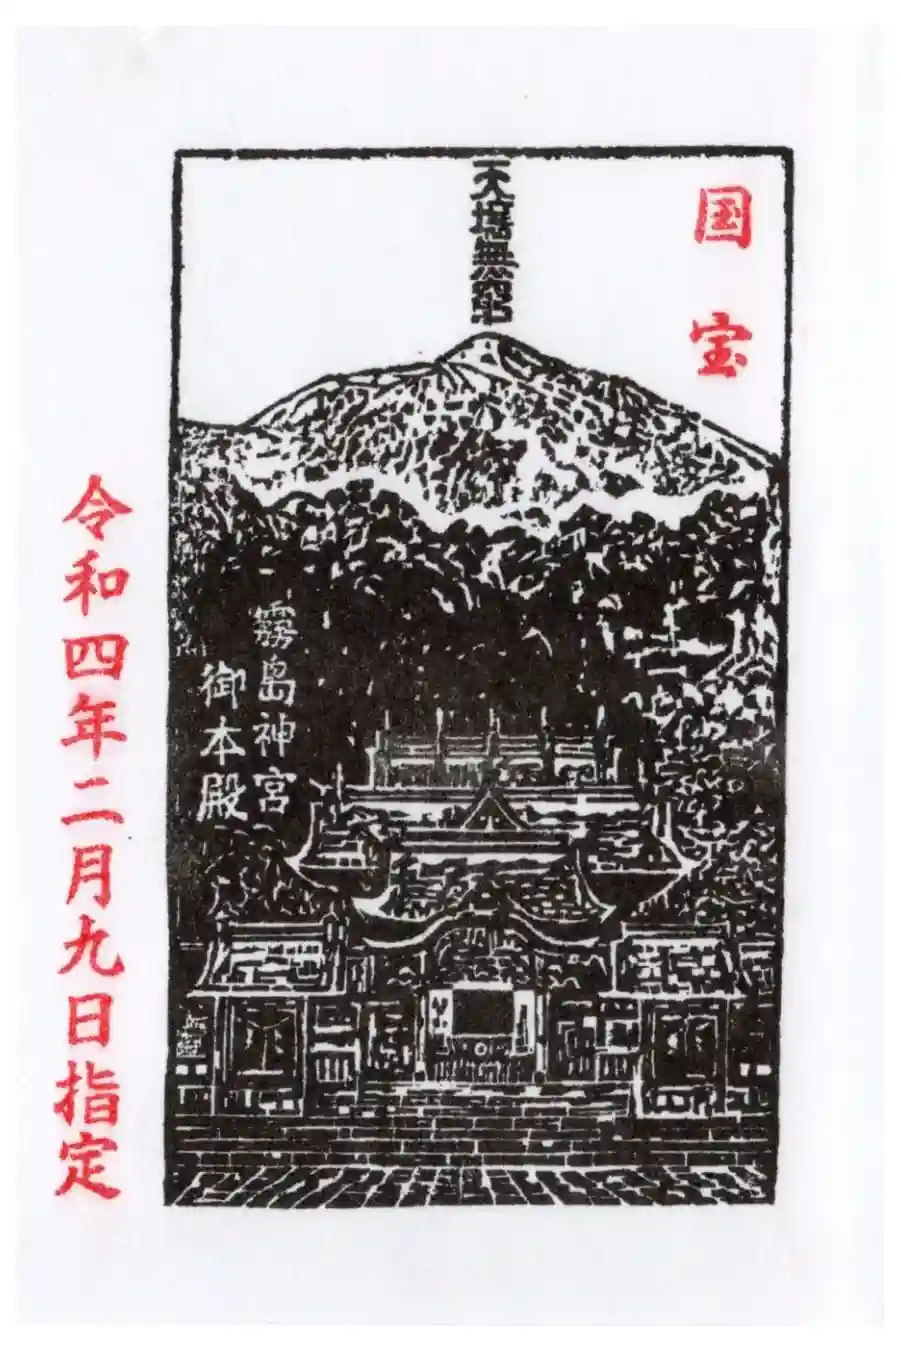 国宝
天壌無窮
霧島神宮
御本殿
令和四年二月九日指定